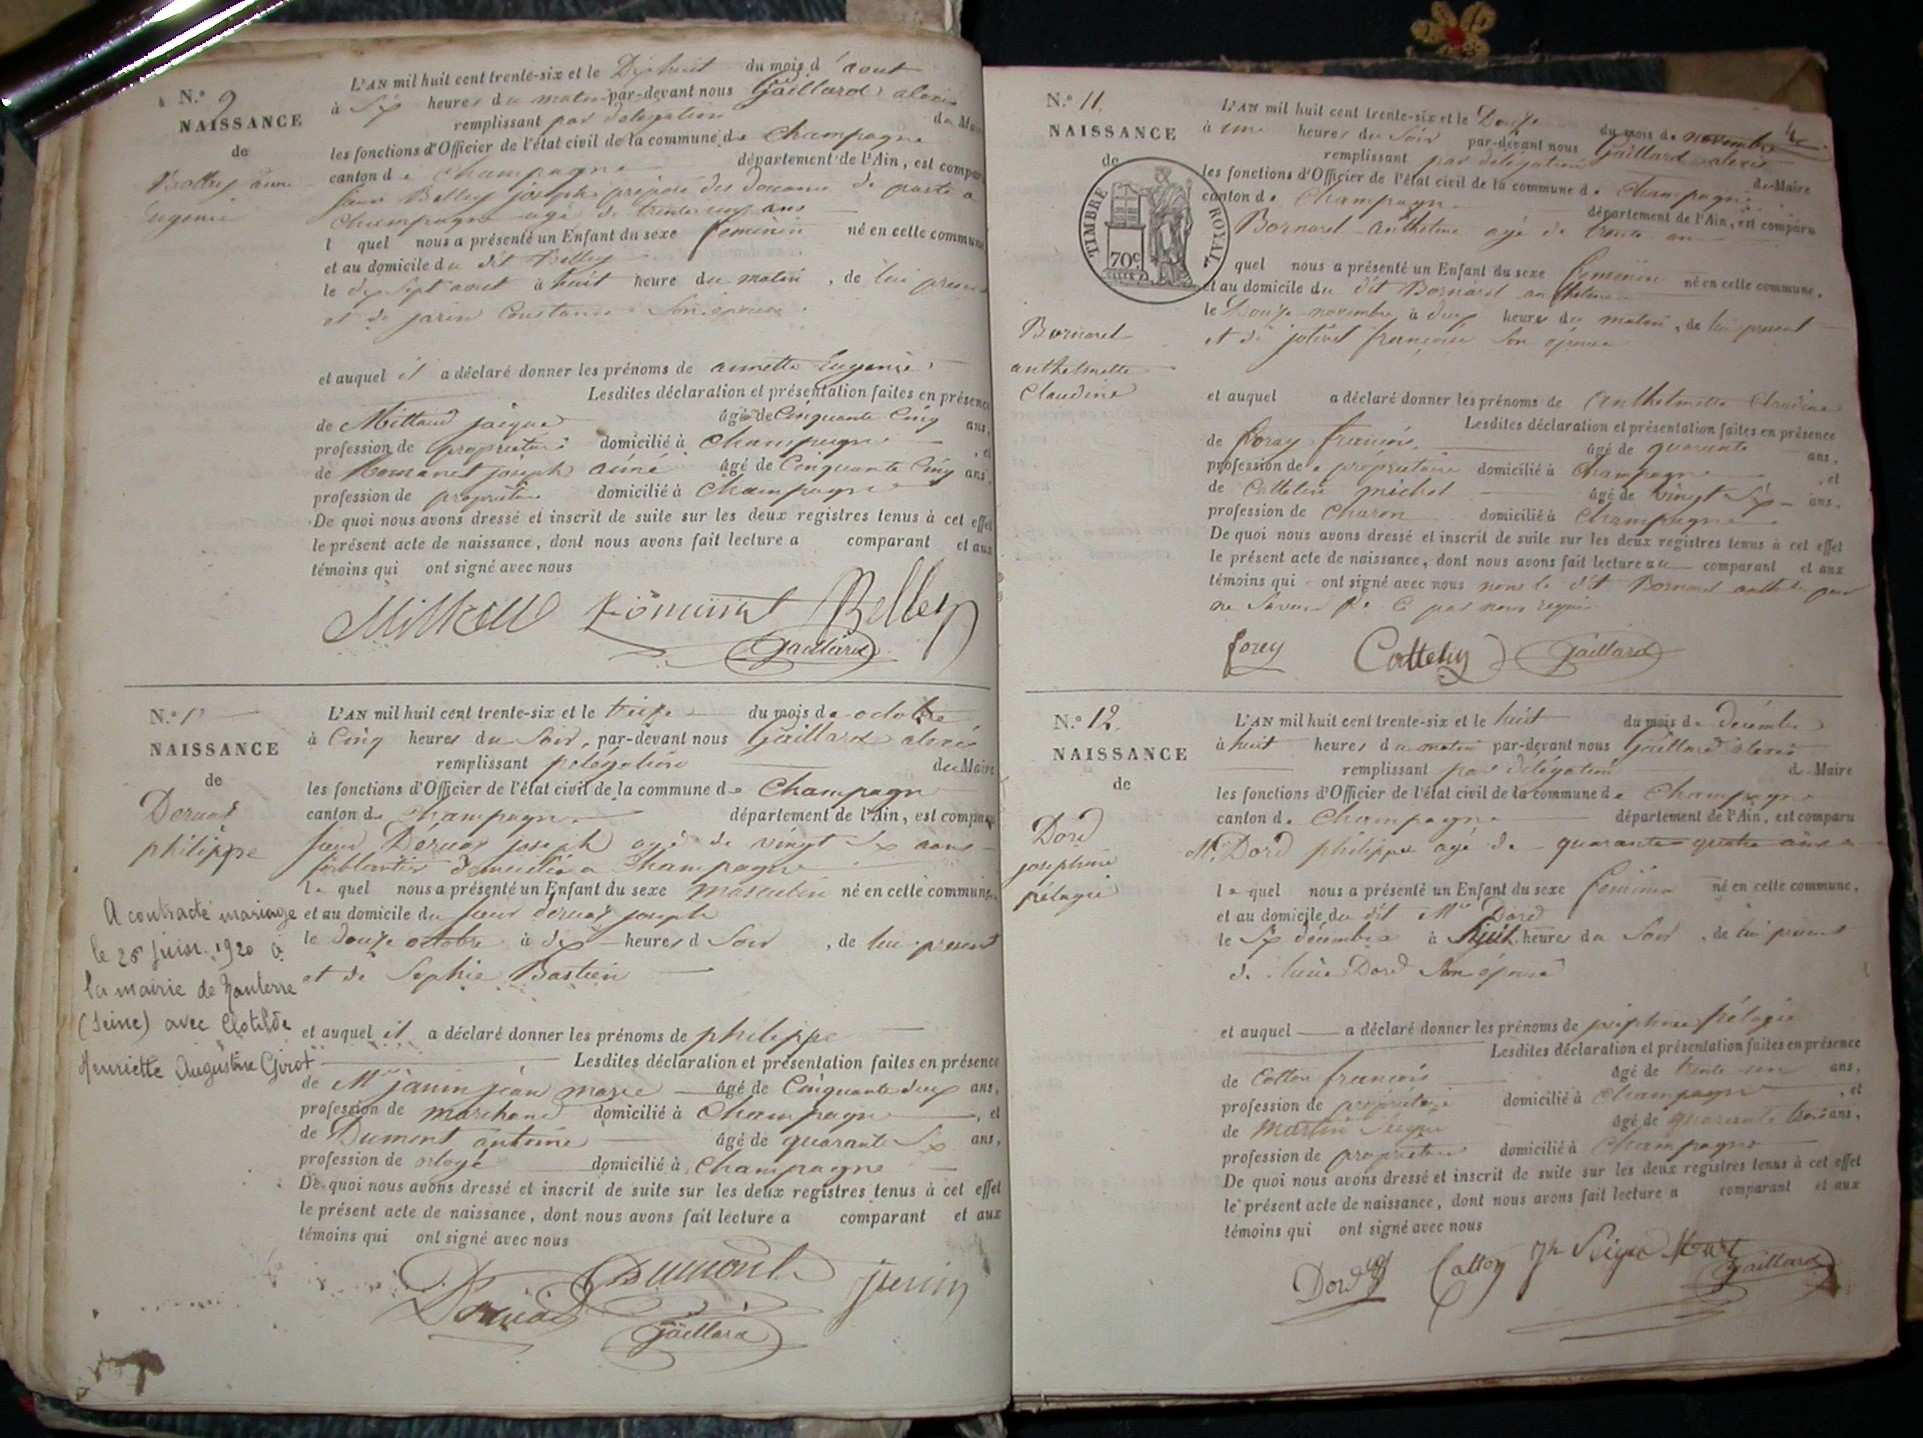 N.º 9
NAISSANCE
de
Belley anne
Eugenie
L'AN mil huit cent trente-six et le Dix huit du mois d'aout
à Six heures du matin par-devant nous Gaillard alexis
remplissant par délégation du Maire
les fonctions d'Officier de l'état civil de la commune de Champagne
canton de Champagne département de l'Ain, est comparu
sieur Belley joseph préposé des douanes de poste a
Champagne agé de trente ans
l quel nous a présenté un Enfant du sexe feminin né en celle commune
et au domicile du dit Belley
le dix Sept aout à huit heure du matin, de lui present
et de jarin Constance Son épouse
et auquel il a déclaré donner les prénoms de annette Eugenie
Lesdites déclaration et présentation faites en présence
de Mittaud jacque âgé de Cinquante Cinq ans,
profession de propriétaire domicilié à Champagne, et
de Romanet joseph ainé âgé de Cinquante Cinq ans
profession de propriétaire domicilié à Champagne
De quoi nous avons dressé et inscrit de suite sur les deux registres tenus à cet effet
le présent acte de naissance, dont nous avons fait lecture a comparant et aux
témoins qui ont signé avec nous
Belley
Gaillard
N.º
NAISSANCE
de
Deruaz
philippe
A contracté mariage
le 26 juin 1920 à
la mairie de Nanterre
(Seine) avec Clotilde
Henriette Augustine Girot
L'AN mil huit cent trente-six et le treize du mois de octobre
à Cinq heures du Soir, par-devant nous Gaillard alexis
remplissant délégation du Maire
les fonctions d'Officier de l'état civil de la commune de Champagne
canton de Champagne département de l'Ain, est comparu
sieur Déruaz joseph agé de vingt Six ans
ferblantier domicilié a Champagne
le quel nous a présenté un Enfant du sexe masculin né en celle commune,
et au domicile du sieur deruaz joseph
le douze octobre à dix heures d Soir, de lui present
et de Sophie Bastien
et auquel il a déclaré donner les prénoms de philippe
Lesdites déclaration et présentation faites en présence
de Mr janin jean marie âgé de Cinquante deux ans,
profession de marchand domicilié à Champagne, et
de Dumont antoine âgé de quarante Six ans,
profession de domicilié à Champagne
De quoi nous avons dressé et inscrit de suite sur les deux registres tenus à cet effet
le présent acte de naissance, dont nous avons fait lecture a comparant et aux
témoins qui ont signé avec nous
Dumont
Deruaz
Gaillard
N.º 11.
NAISSANCE
de
TIMBRE ROYAL
70c
Bornarel
anthelmette
Claudine
4
L'AN mil huit cent trente-six et le Douze du mois de novembre
à une heures du Soir par-devant nous Gaillard alexis
remplissant par délégation du Maire
les fonctions d'Officier de l'état civil de la commune de Champagne
canton de Champagne département de l'Ain, est comparu
Bornarel anthelme agé de trente an
quel nous a présenté un Enfant du sexe feminin né en celle commune,
et au domicile du dit Bornarel anthelme
le Douze novembre à deux heures du matin, de lui present
et de françoise Son épouse
et auquel a déclaré donner les prénoms de anthelmette Claudine
Lesdites déclaration et présentation faites en présence
de foray françois âgé de quarante ans,
profession de propriétaire domicilié à Champagne, et
de Cattelin michel âgé de vingt Six ans,
profession de charon domicilié à Champagne
De quoi nous avons dressé et inscrit de suite sur les deux registres tenus à cet effet
le présent acte de naissance, dont nous avons fait lecture au comparant et aux
témoins qui ont signé avec nous non le dit Bornarel pour
ne Savoir de ce par nous requis
forey
Cattelin
Gaillard
N.º 12.
NAISSANCE
de
Dord
josephine
pélagie
L'AN mil huit cent trente-six et le huit du mois de decembre
à huit heures du matin par-devant nous Gaillard alexis
remplissant par délégation d Maire
les fonctions d'Officier de l'état civil de la commune de Champagne
canton de Champagne département de l'Ain, est comparu
Mr Dord philippe agé de quarante quatre ans
le quel nous a présenté un Enfant du sexe feminin né en celle commune,
et au domicile du dit Mr Dord
le Six décembre à heures du Soir, de lui present
Dord Son épouse
et auquel a déclaré donner les prénoms de josephine Pélagie
Lesdites déclaration et présentation faites en présence
de Cotton francois âgé de trente un ans,
profession de propriétaire domicilié à Champagne, et
de martin âgé de quarante trois ans,
profession de propriétaire domicilié à Champagne
De quoi nous avons dressé et inscrit de suite sur les deux registres tenus à cet effet
le présent acte de naissance, dont nous avons fait lecture a comparant et aux
témoins qui ont signé avec nous
Dord
Gaillard